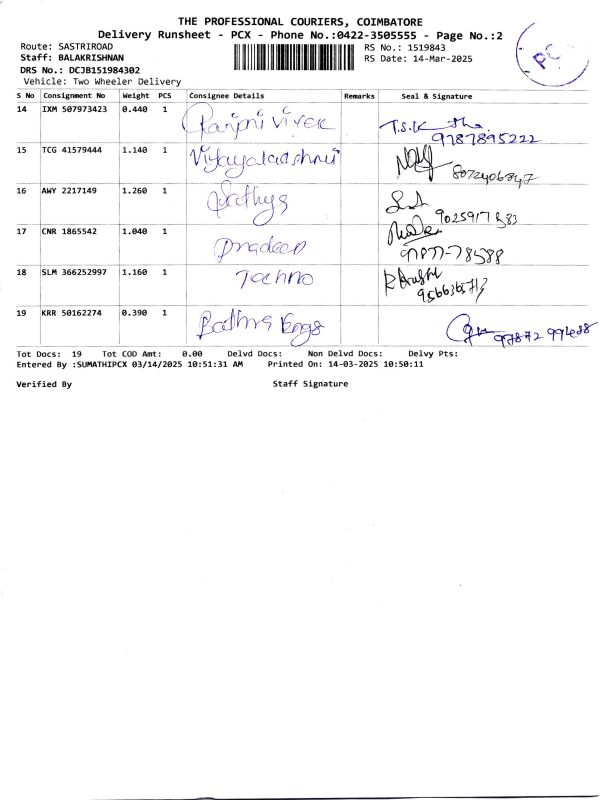 THE PROFESSIONAL COURIERS, COIMBATORE
Delivery Runsheet - PCX - Phone No.:0422-3505555 - Page No.:2
Route: SASTRIROAD
RS No.: 1519843
Staff: BALAKRISHNAN
RS Date: 14-Mar-2025
DRS No.: DCJB151984302
Vehicle: Two Wheeler Delivery
PC
S No Consignment No Weight PCS Consignee Details Remarks Seal & Signature
14 IXM 507973423 0.440 1 Ranjni Vivek T.S.K
9787895222
15 TCG 41579444 1.140 1 Vijayalakshmi
8072406847
16 AWY 2217149 1.260 1 Sathys
17 CNR 1865542 1.040 1 Pradeep
18 SLM 366252997 1.160 1 Techno
19 KRR 50162274 0.390 1 Engs
97872 99488
Tot Docs: 19 Tot COD Amt: 0.00 Delvd Docs: Non Delvd Docs: Delvy Pts:
Entered By :SUMATHIPCX 03/14/2025 10:51:31 AM Printed On: 14-03-2025 10:50:11
Verified By Staff Signature